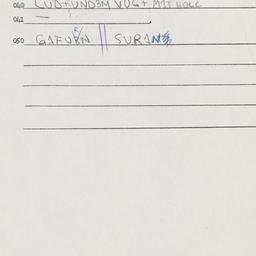 040 CUD+UND3M VUG+ MIT HOLC
041 —
050 GAFURN || SURIN